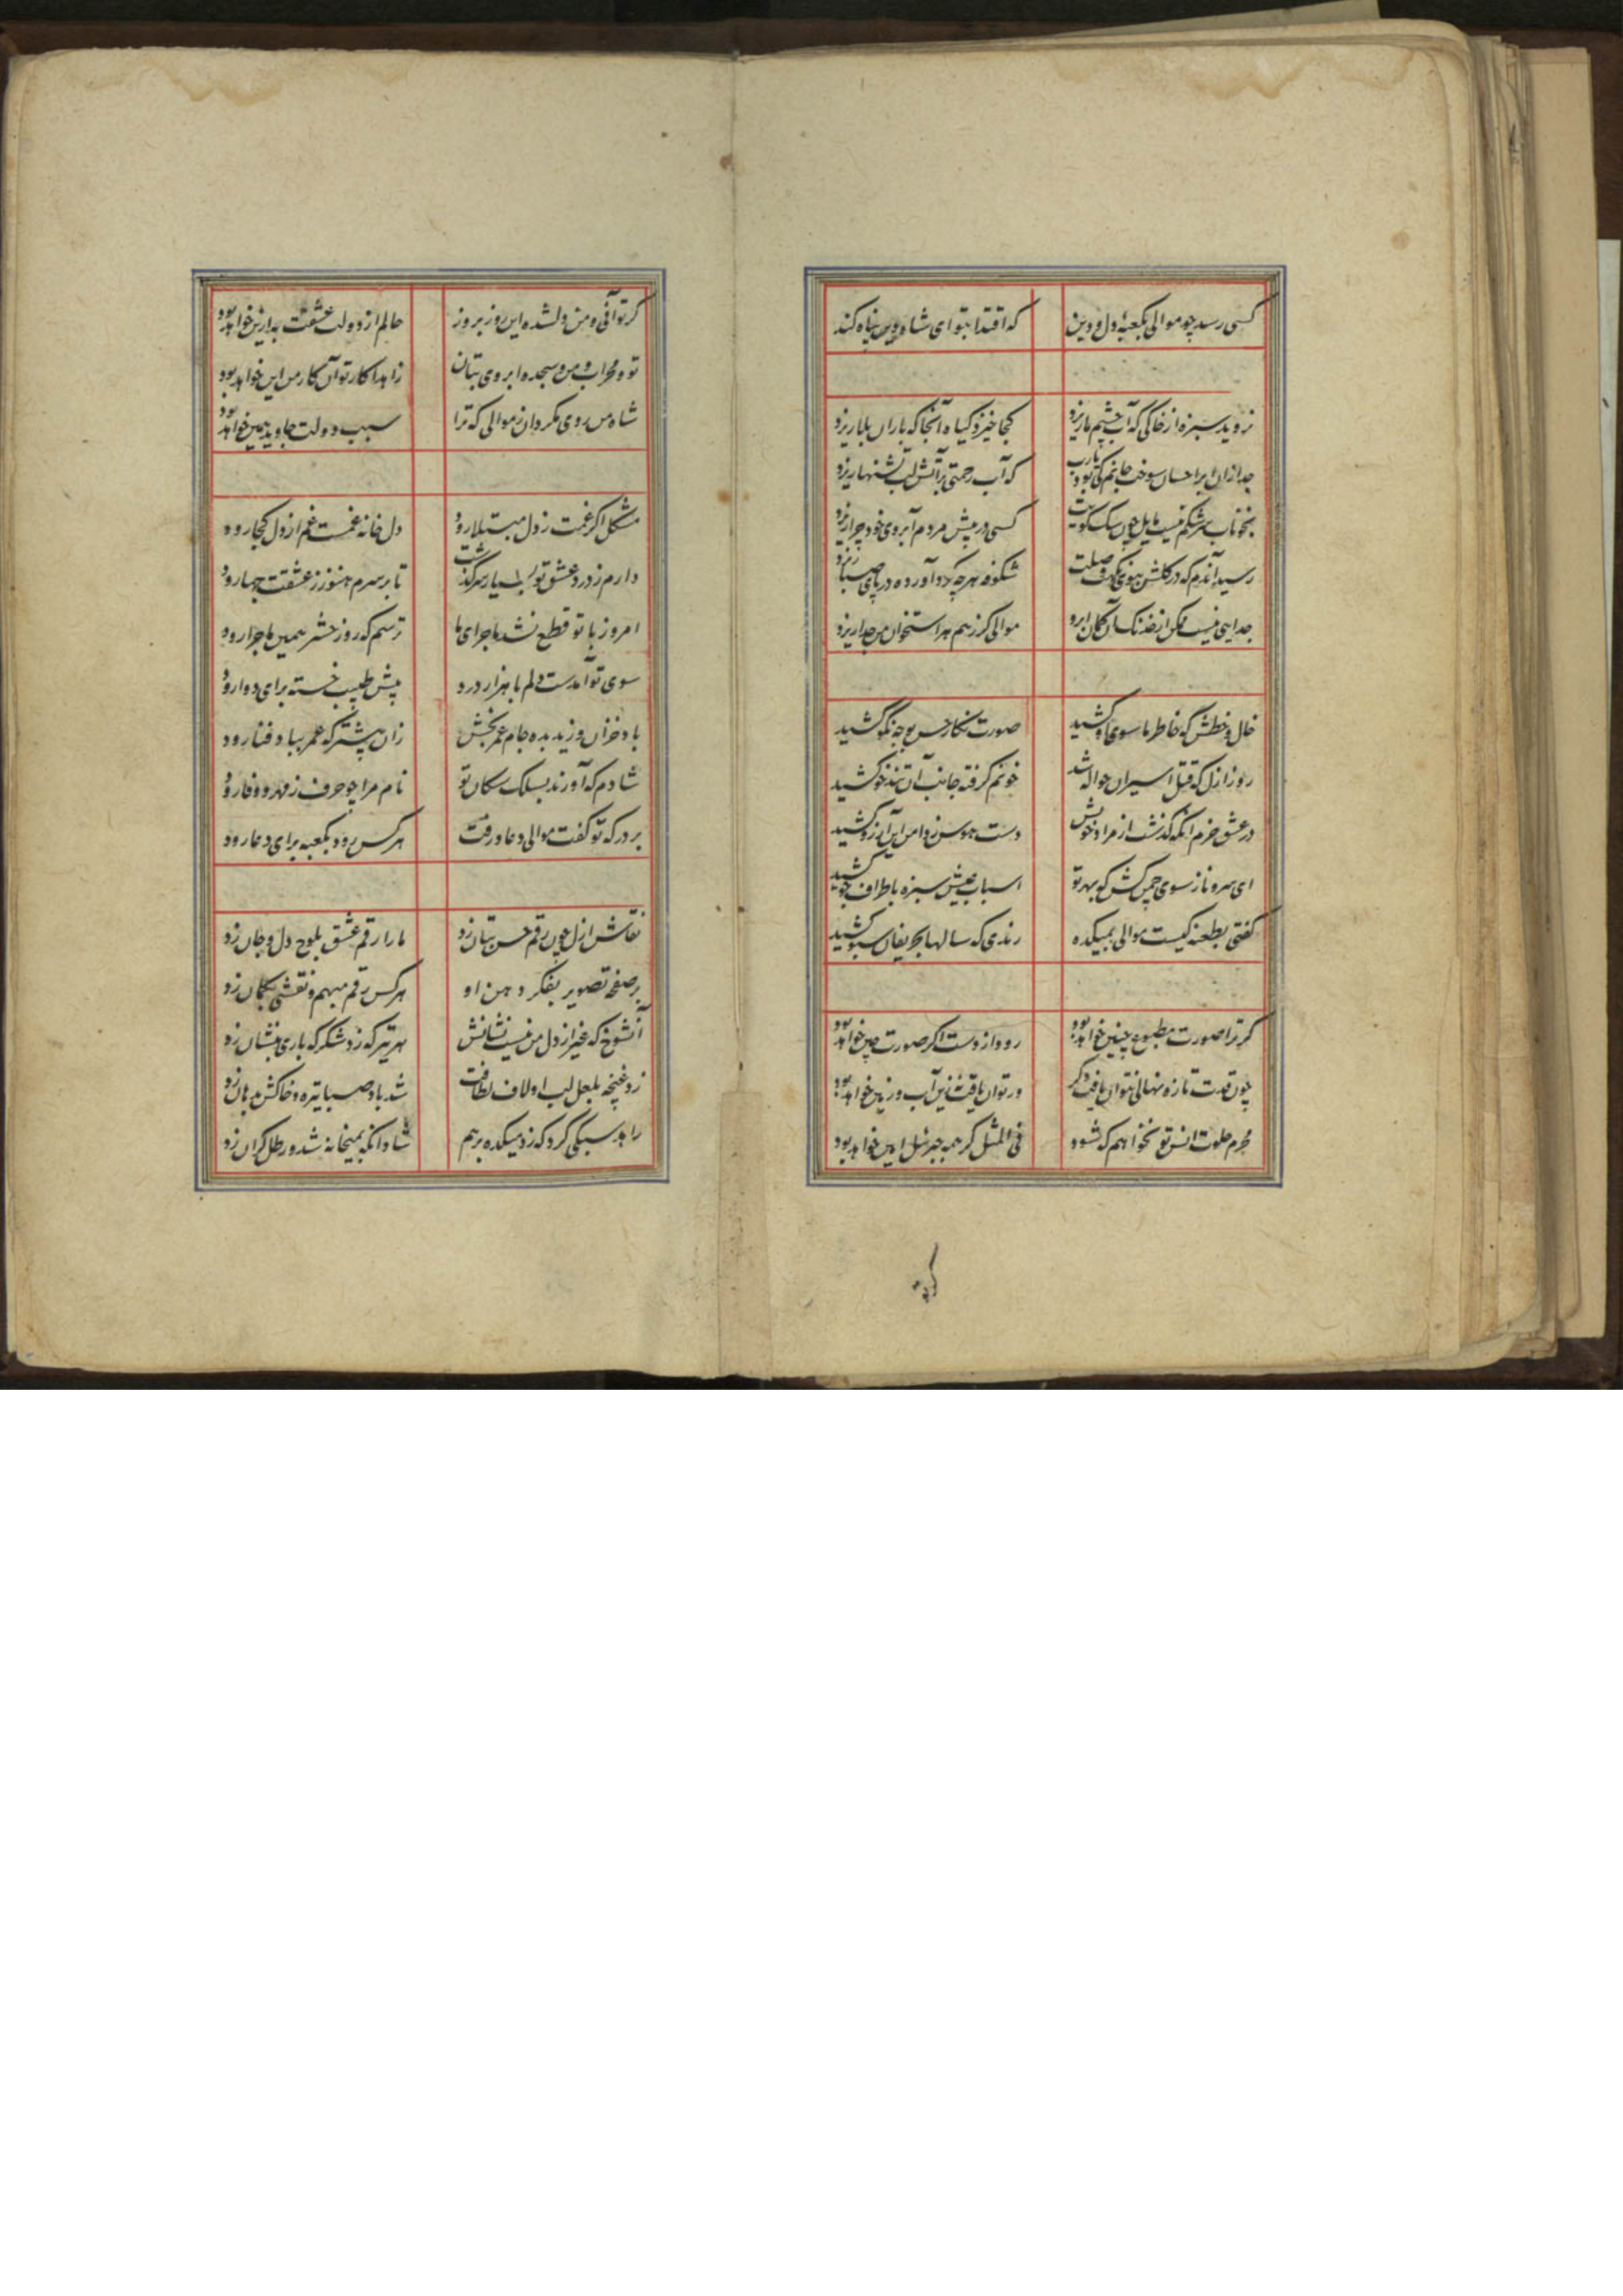 کسی رسد چو موالی بکعبه دل و دین که اقتدا بتو ای شاه دین پناه کند
نروید سبزه از خاکی که آب چشم ما ریزد کجا خیزد گیاه آنجا که باران بلا ریزد
جدا زان ابر احسان سوخت جانم کی بود یارب که آب رحمتی بر آتش لب تشنها ریزد
بخوناب سرشکم نیست مایل چون سک کویت کسی در پیش مردم آبروی خود چرا ریزد
رسید آندم که در گلشن صلت شکوفه هرچه آورده در پای صبا ریزد
جدایی نیست ممکن از خدنک آن کمان ابرو موالی کز هم هر استخوان من جدا ریزد
خال و خطش که خاطر ما سوی او کشید صورت نکار حسن بوجه نکو کشید
روز ازل که قتل اسیران حواله شد خونم گرفته جانب آن تندخو کشید
در عشق خرم آنکه گذشت از مراد خویش دست هوس ز دامن این آرزو کشید
ای سرو ناز سوی چمن کش که بهر تو اسباب عیش سبزه باطراف جو کشید
گفتی بطعنه کیست موالی بمیکده رندی که سالها بحریفان سبو کشید
گر ترا صورت مطبوع چنین خواهد بود رود از دست اگر صورت چین خواهد بود
چون قدت تازه نهالی نتوان یافت دگر ور توان یافت ازین آب و زمین خواهد بود
محرم خلوت انس تو نخواهم که شود فی المثل گر همه جبرئیل امین خواهد بود
کرتو
گر تو آنی و من دلشده این روز بروز حالم از دولت عشقت به ازین خواهد بود
تو و محراب و من و سجده ابروی بتان زاهدا کار تو آن کار من این خواهد بود
شاه من روی مگردان ز موالی که ترا سبب دولت جاوید همین خواهد بود
مشکل اگر غمت ز دل مبتلا رود دل خانه غمست غم از دل کجا رود
دارم ز درد عشق تو بسیار سرگذشت تا بر سرم هنوز ز عشقت چها رود
امروز با تو قطع نشد ماجرای ما ترسم که روز حشر همین ماجرا رود
سوی تو آمدست دلم با هزار درد پیش طبیب خسته برای دوا رود
باد خزان وزید بده جام عمر بخش زان پیشتر که عمر بباد فنا رود
شادم که آورند بسلک سکان تو نام مرا چو حرف ز مهر و وفا رود
بر درکه تو گفت موالی دعا و رفت هر کس رود بکعبه برای دعا رود
نقاش ازل چون رقم حسن بتان زد ما را رقم عشق بلوح دل و جان زد
بر صفحه تصویر بفکر دهن او هر کس رقم مبهم و نقشی بگمان زد
آنشوخ که غیر از دل من نیست نشانش هر تیر که زد شکر که باری بنشان زد
زد غنچه بلعل لب او لاف لطافت شد باد صبا تیره و خاکش بدهان زد
زاهد سبکی کرد که زد میکده برهم شاد آنکه بمیخانه شد و رطل گران زد